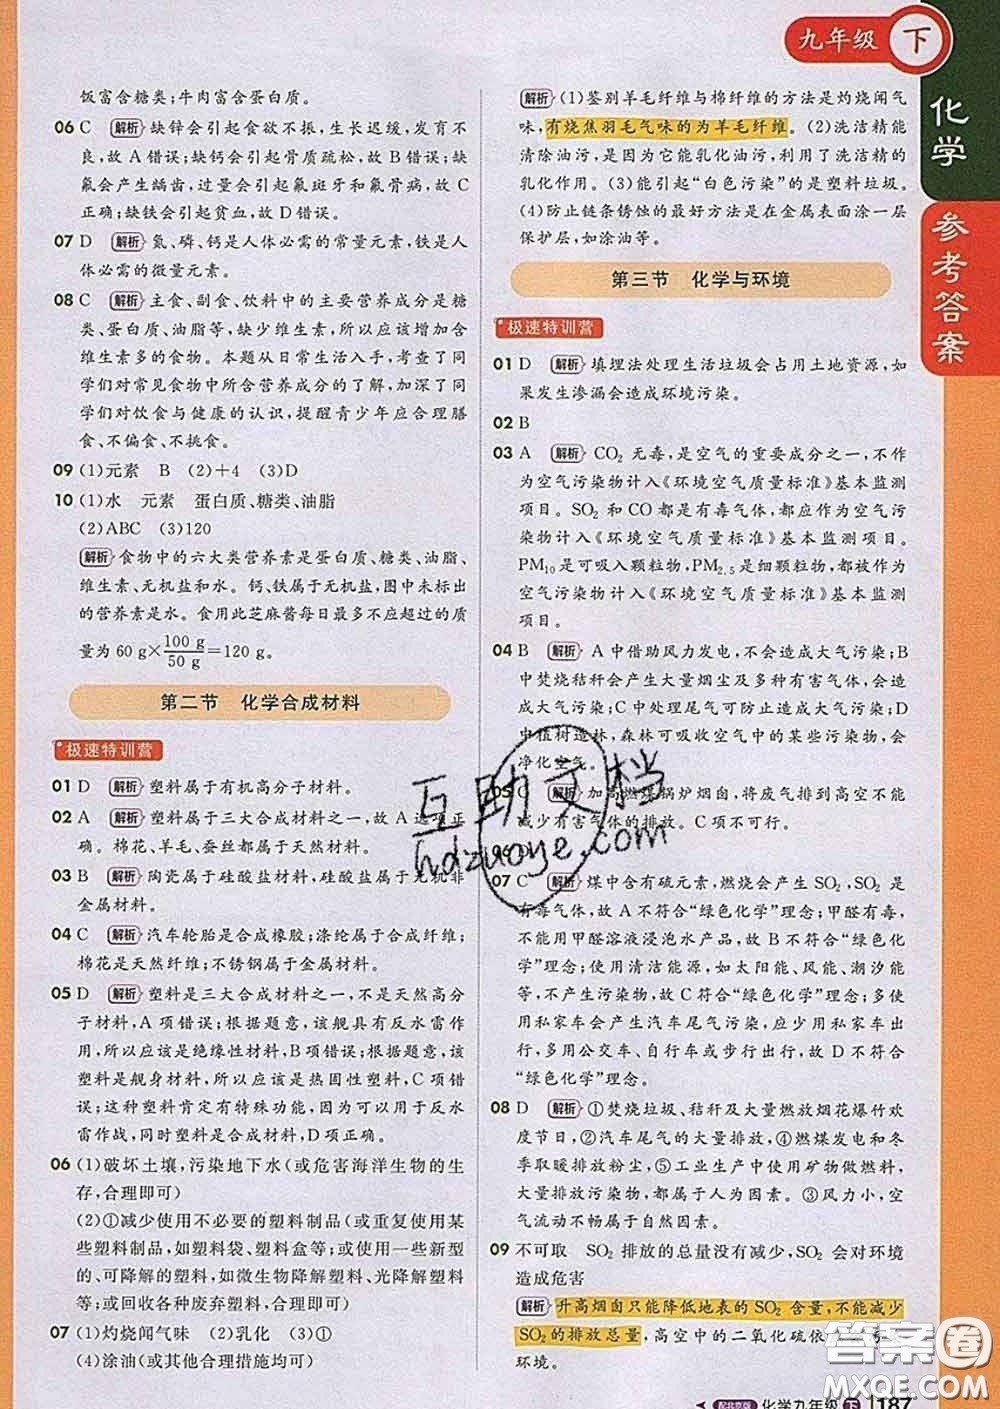 九年级 下
化学
参考答案
饭富含糖类;牛肉富含蛋白质。
06 C 解析 缺锌会引起食欲不振,生长迟缓,发育不
良,故 A 错误;缺钙会引起骨质疏松,故 B 错误;缺
氟会产生龋齿,过量会引起氟斑牙和氟骨病,故 C
正确;缺铁会引起贫血,故 D 错误。
07 D 解析 氮、磷、钙是人体必需的常量元素,铁是人
体必需的微量元素。
08 C 解析 主食、副食、饮料中的主要营养成分是糖
类、蛋白质、油脂等,缺少维生素,所以应该增加含
维生素多的食物。本题从日常生活入手,考查了同
学们对常见食物中所含营养成分的了解,加深了同
学们对饮食与健康的认识,提醒青少年应合理膳
食、不偏食、不挑食。
09 (1)元素 B (2)+4 (3)D
10 (1)水 元素 蛋白质、糖类、油脂
(2)ABC (3)120
解析 食物中的六大类营养素是蛋白质、糖类、油脂、
维生素、无机盐和水。钙、铁属于无机盐,图中未标出
的营养素是水。食用此芝麻酱每日最多不多于的质
量为 60 g×100 g/50 g=120 g。
第二节 化学合成材料
极速特训营
01 D 解析 塑料属于有机高分子材料。
02 A 解析 塑料属于三大合成材料之一,故 A 选项正
确。棉花、羊毛、蚕丝都属于天然材料。
03 B 解析 陶瓷属于硅酸盐材料,硅酸盐材料属于无机非
金属材料。
04 C 解析 汽车轮胎是合成橡胶;涤纶属于合成纤维;
棉花是天然纤维;不锈钢属于金属材料。
05 D 解析 塑料是三大合成材料之一,不是天然高分
子材料,A 项错误;根据题意,该舰具有反水雷作
用,所以应该是绝缘性材料,B 项错误;根据题意,该
塑料是舰身材料,所以应该是热固性塑料,C 项错
误;这种塑料肯定有特殊功能,因为可以用于反水
雷作战,同时塑料是合成材料,D 项正确。
06 (1)破坏土壤,污染地下水(或危害海洋生物的生
存,合理即可)
(2)①减少使用不必要的塑料制品(或重复使用某
些塑料制品,如塑料袋、塑料盒等;或使用一些新型
的、可降解的塑料,如微生物降解塑料、光降解塑料
等;或回收各种废弃塑料,合理即可)
07 (1)灼烧闻气味 (2)乳化 (3)①
(4)涂油(或其他合理措施均可)
解析 (1)鉴别羊毛纤维与棉纤维的方法是灼烧闻气
味,有烧焦羽毛气味的为羊毛纤维。(2)洗洁精能
清除油污,是因为它能乳化油污,利用了洗洁精的
乳化作用。(3)能引起“白色污染”的是塑料垃圾。
(4)防止链条锈蚀的最好方法是在金属表面涂一层
保护层,如涂油等。
第三节 化学与环境
极速特训营
01 D 解析 填埋法处理生活垃圾会占用土地资源,如
果发生渗漏会造成环境污染。
02 B
03 A 解析 CO₂ 无毒,是空气的重要成分之一,不作
为空气污染物计入《环境空气质量标准》基本监测
项目。SO₂ 和 CO 都是有毒气体,都应作为空气污
染物计入《环境空气质量标准》基本监测项目。
PM₁₀是可吸入颗粒物,PM₂.₅是细颗粒物,都应作为
空气污染物计入《环境空气质量标准》基本监测
项目。
04 B 解析 A 中借助风力发电,不会造成大气污染;B
中焚烧秸秆会产生大量烟尘及多种有害气体,会造
成大气污染;C 中处理尾气可防止造成大气污染;D
中植树造林,森林可吸收大气中的某些污染物,会
净化空气。
05 C 解析 加高燃煤锅炉烟囱,将废气排到高空不能
减少有害气体的排放。C 项不可行。
06 D
07 C 解析 煤中含有硫元素,燃烧会产生 SO₂,SO₂ 是
有毒气体,故 A 不符合“绿色化学”理念;甲醛有毒,
不能用甲醛溶液浸泡水产品,故 B 不符合“绿色化
学”理念;使用清洁能源,如太阳能、风能、潮汐能
等,不会产生污染物,故 C 符合“绿色化学”理念;多使
用私家车会产生汽车尾气污染,应少用私家车出
行,多用公交车、自行车或步行出行,故 D 不符合
“绿色化学”理念。
08 D 解析 ①焚烧垃圾、秸秆及大量燃放烟花爆竹欢
度节日,②汽车尾气的大量排放,④燃煤发电和冬
季取暖排放粉尘,⑤工业生产中使用矿物燃料,
大量排放污染物,都属于人为因素。③风力小,空
气流动不畅属于自然因素。
09 不可取 SO₂ 排放的总量没有减少,SO₂ 会对环境
造成危害
解析 升高烟囱只能降低地表的 SO₂ 含量,不能减少
SO₂的排放总量,高空中的二氧化硫依
环境。
互助文档
hdzuoye.com
答案圈
MXQE.COM
配北京版 化学九年级 下 187